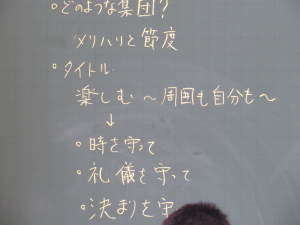 ○どのような集団?
メリハリと節度
○タイトル
楽しむ ～周囲も自分も～
↓
○時を守って
○礼儀を守って
○決まりを守